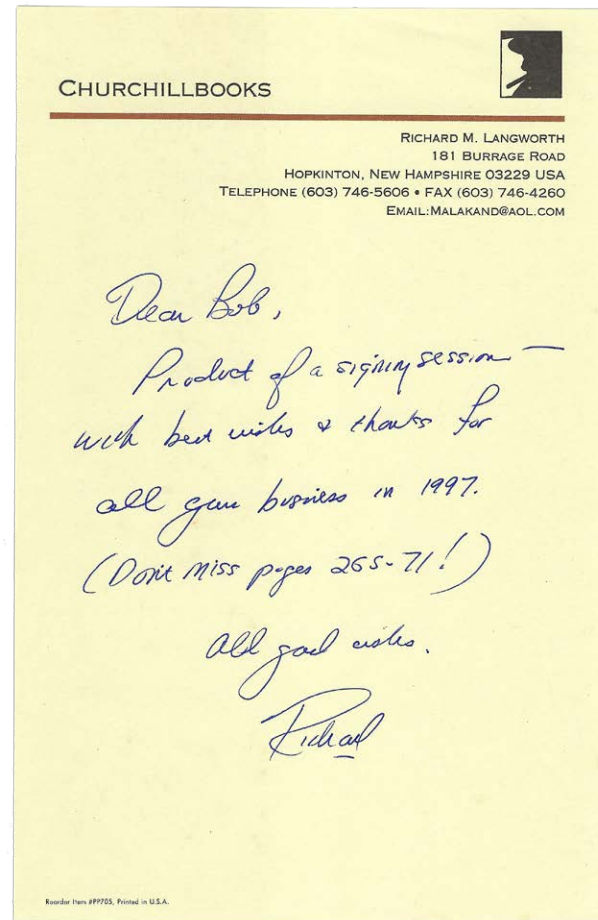 CHURCHILLBOOKS
RICHARD M. LANGWORTH
181 BURRAGE ROAD
HOPKINTON, NEW HAMPSHIRE 03229 USA
TELEPHONE (603) 746-5606 • FAX (603) 746-4260
EMAIL:MALAKAND@AOL.COM
Dear Bob,
Product of a signing session —
with best wishes & thanks for
all your business in 1997.
(Don't miss pages 265-71!)
All good wishes.
Richard
Reorder Item #PP705, Printed in U.S.A.